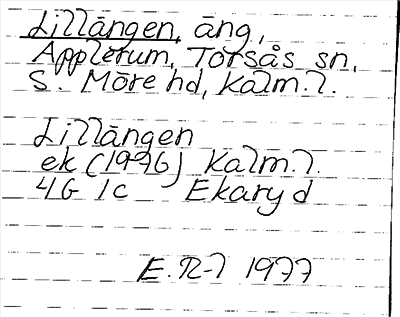 Lillängen, äng,
Applerum, Torsås sn,
S. Möre hd, Kalm.l.
Lillängen
ek (1946) Kalm.l.
4G 1c Ekaryd
E. R-l 1977